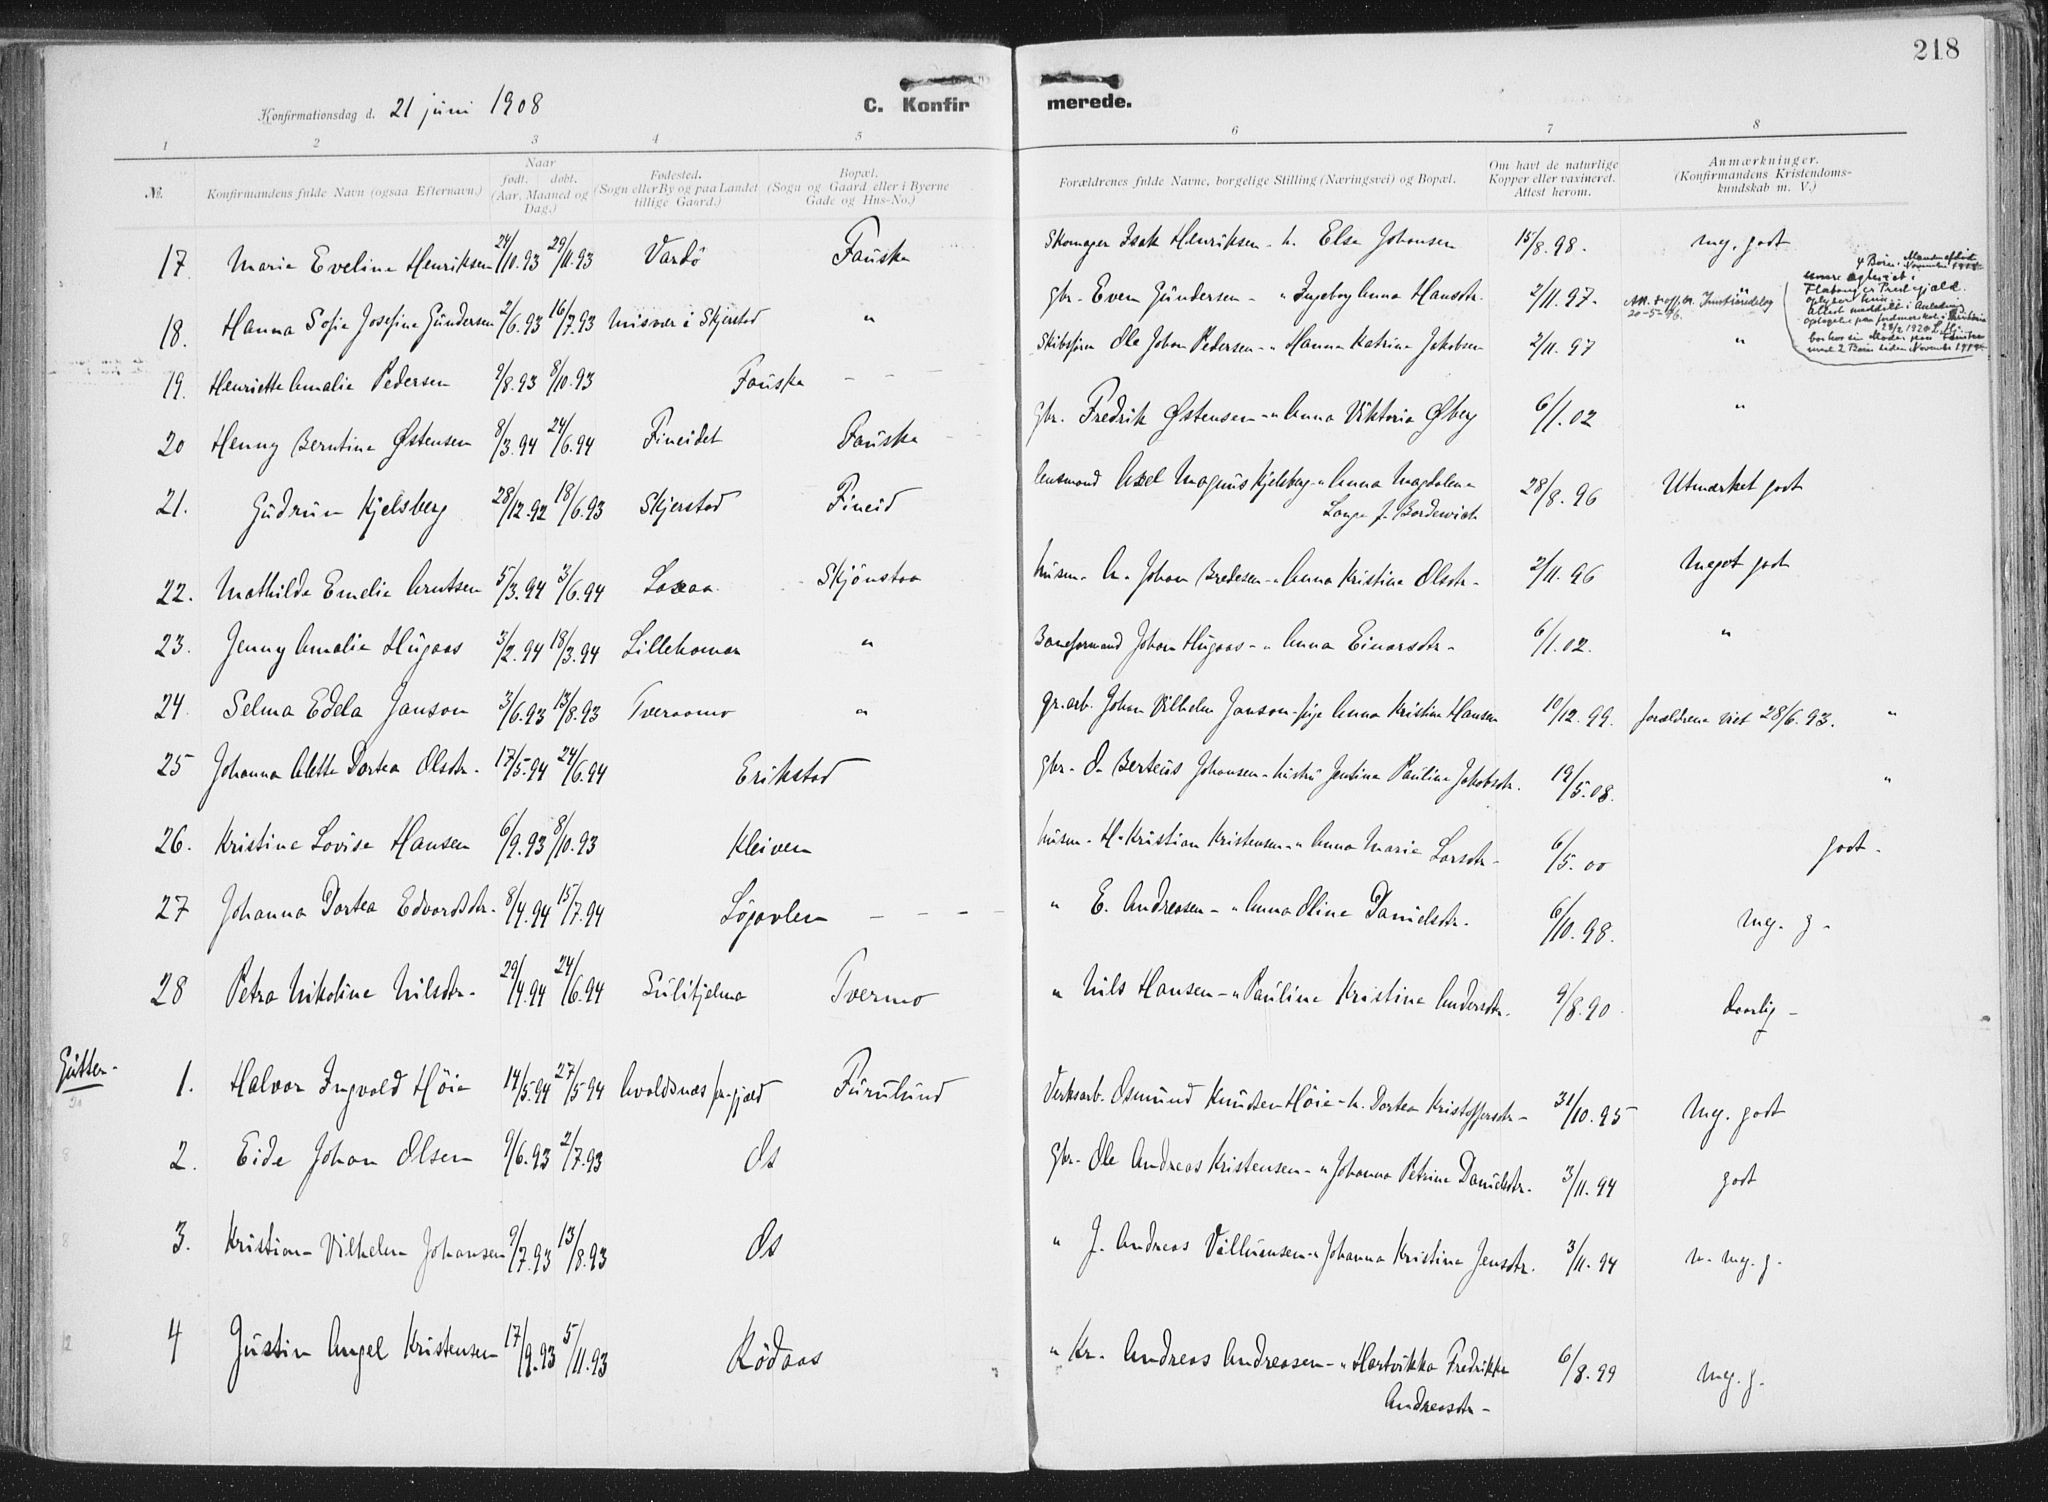 218
Konfirmationsdag d. 21 juni 1908
C. Konfirmerede.
1 2 3 4 5 6 7 8
No. Konfirmandens fulde Navn (ogsaa Efternavn.) Naar født. døbt. (Aar, Maaned og Dag.) Fødested. (Sogn eller By og paa Landet tillige Gaard.) Bopæl. (Sogn og Gaard eller i Byerne Gade og Hus-No.) Forældrenes fulde Navne, borgelige Stilling (Næringsvei) og Bopæl. Om havt de naturlige Kopper eller vaxineret. Attest herom. Anmærkninger. (Konfirmandens Kristendomskundskab m. V.)
17 Marie Eveline Henriksen 24/10.93 29/11.93 Vardö Fauske Skomager Isak Henriksen - h. Elsa Johansen 15/8.98. meg. godt
18. Hanna Sofie Josefine Gundersen 2/6.93 16/7.93 Misvær i Skjerstad " gbr. Even Gundersen - " Ingeborg Anna Hansdtr. 2/11.97. "
19. Henriette Amalie Pedersen 9/8.93 8/10.93 Fauske - - - Skibsförer Ole Johan Pedersen - " Hanna Katrine Jakobsen 2/11.97 "
20 Henny Berntine Østensen 8/3.94 24/6.94 Fineidet Fauske gbr. Fredrik Østensen - " Anna Viktoria Øberg 6/1.02 "
21. Gudrun Kjelsberg 28/12.92 18/6.93 Skjerstad Fineid lensmand Axel Magnus Kjelsberg - " Anna Magdalena Lange f. Bordewich 28/8.96 Utmærket godt
22. Mathilde Emelie Arntsen 5/3.94 3/6.94 Laxaa Skjönstaa husm. A. Johan Bredesen - " Anna Kristine Olsdtr. 2/11.96 Meget godt
23. Jenny Amalie Hugaas 3/2.94 18/3.94 Lillehamar " Baneformand Johan Hugaas - " Anna Einarsdtr. 6/1.02. "
24 Selma Edela Janson 3/6.93 13/8.93 Tveraamo " gr.arb. Johan Vilhelm Janson - pige Anna Kristine Hansen 10/12.99. forældrene viet 28/6.93. "
25 Johanna Alette Dortea Olsdtr. 17/5.94 24/6.94 Erikstad gbr. O. Berteus Johansen - hustru Jentine Pauline Jakobsdtr. 19/5.08. "
26. Kristine Lovise Hansen 6/9.93 8/10.93 Kleiven husm. H. Kristian Kristensen - " Anna Marie Larsdtr. 6/5.00 godt.
27 Johanna Dortea Edvardsdtr. 8/4.94 15/7.94 Löjavlen - - - - " E. Andreasen - " Anna Oline Danielsdtr. 6/10.98. meg. g.
28 Petra Nikoline Nilsdtr. 29/4.94 24/6.94 Sulitjelma Tvermo " Nils Hansen - " Pauline Kristine Andersdtr. 9/8.90 daarlig
Gutter.
1. Halvor Ingvald Höie 14/5.94 27/5.94 Avaldsnæs pr.gjæld Furulund Verksarb. Osmund Knudsen Höie - h. Dortea Kristoffersdtr. 31/10.95 Meg. godt
2. Eide Johan Olsen 9/6.93 2/7.93 Os gbr. Ole Andreas Kristensen - " Johanna Petrine Danielsdtr. 3/11.94 godt
3. Kristian Vilhelm Johansen 9/7.93 13/8.93 Os " J. Andreas Villumsen - " Johanna Kristine Jensdtr. 3/11.94 n. meg. g.
4 Justin Angel Kristensen 17/9.93 5/11.93 Rödaas " Kr. Andreas Andreasen - " Hartvikka Fredrikke Andreasdtr. 6/8.99 meg. g.